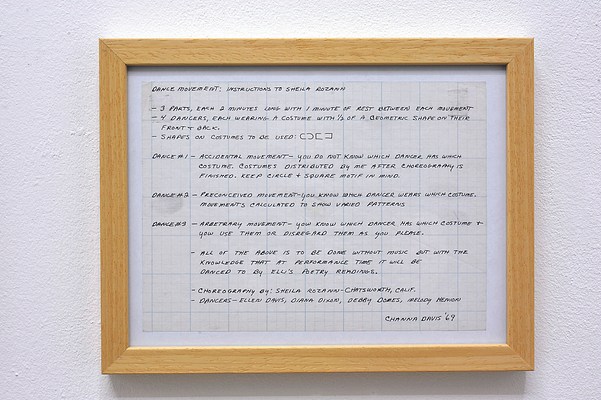 DANCE MOVEMENT: INSTRUCTIONS TO SHEILA ROZANN
- 3 PARTS, EACH 2 MINUTES LONG WITH 1 MINUTE OF REST BETWEEN EACH MOVEMENT
- 4 DANCERS, EACH WEARING A COSTUME WITH 1/2 OF A GEOMETRIC SHAPE ON THEIR
FRONT + BACK.
- SHAPES ON COSTUMES TO BE USED:
DANCE #1 - ACCIDENTAL MOVEMENT - YOU DO NOT KNOW WHICH DANCER HAS WHICH
COSTUME. COSTUMES DISTRIBUTED BY ME AFTER CHOREOGRAPHY IS
FINISHED. KEEP CIRCLE + SQUARE MOTIF IN MIND.
DANCE #2 - PRECONCEIVED MOVEMENT - YOU KNOW WHICH DANCER WEARS WHICH COSTUME.
MOVEMENTS CALCULATED TO SHOW VARIED PATTERNS
DANCE #3 - ARBETRARY MOVEMENT - YOU KNOW WHICH DANCER HAS WHICH COSTUME +
YOU USE THEM OR DISREGARD THEM AS YOU PLEASE.
- ALL OF THE ABOVE IS TO BE DONE WITHOUT MUSIC BUT WITH THE
KNOWLEDGE THAT AT PERFORMANCE TIME IT WILL BE
DANCED TO BY ELLI'S POETRY READINGS.
- CHOREOGRAPHY BY: SHEILA ROZANN - CHATSWORTH, CALIF.
- DANCERS - ELLEN DAVIS, DIANA DIXON, DEBBY DOMES, MELODY
CHANNA DAVIS '69